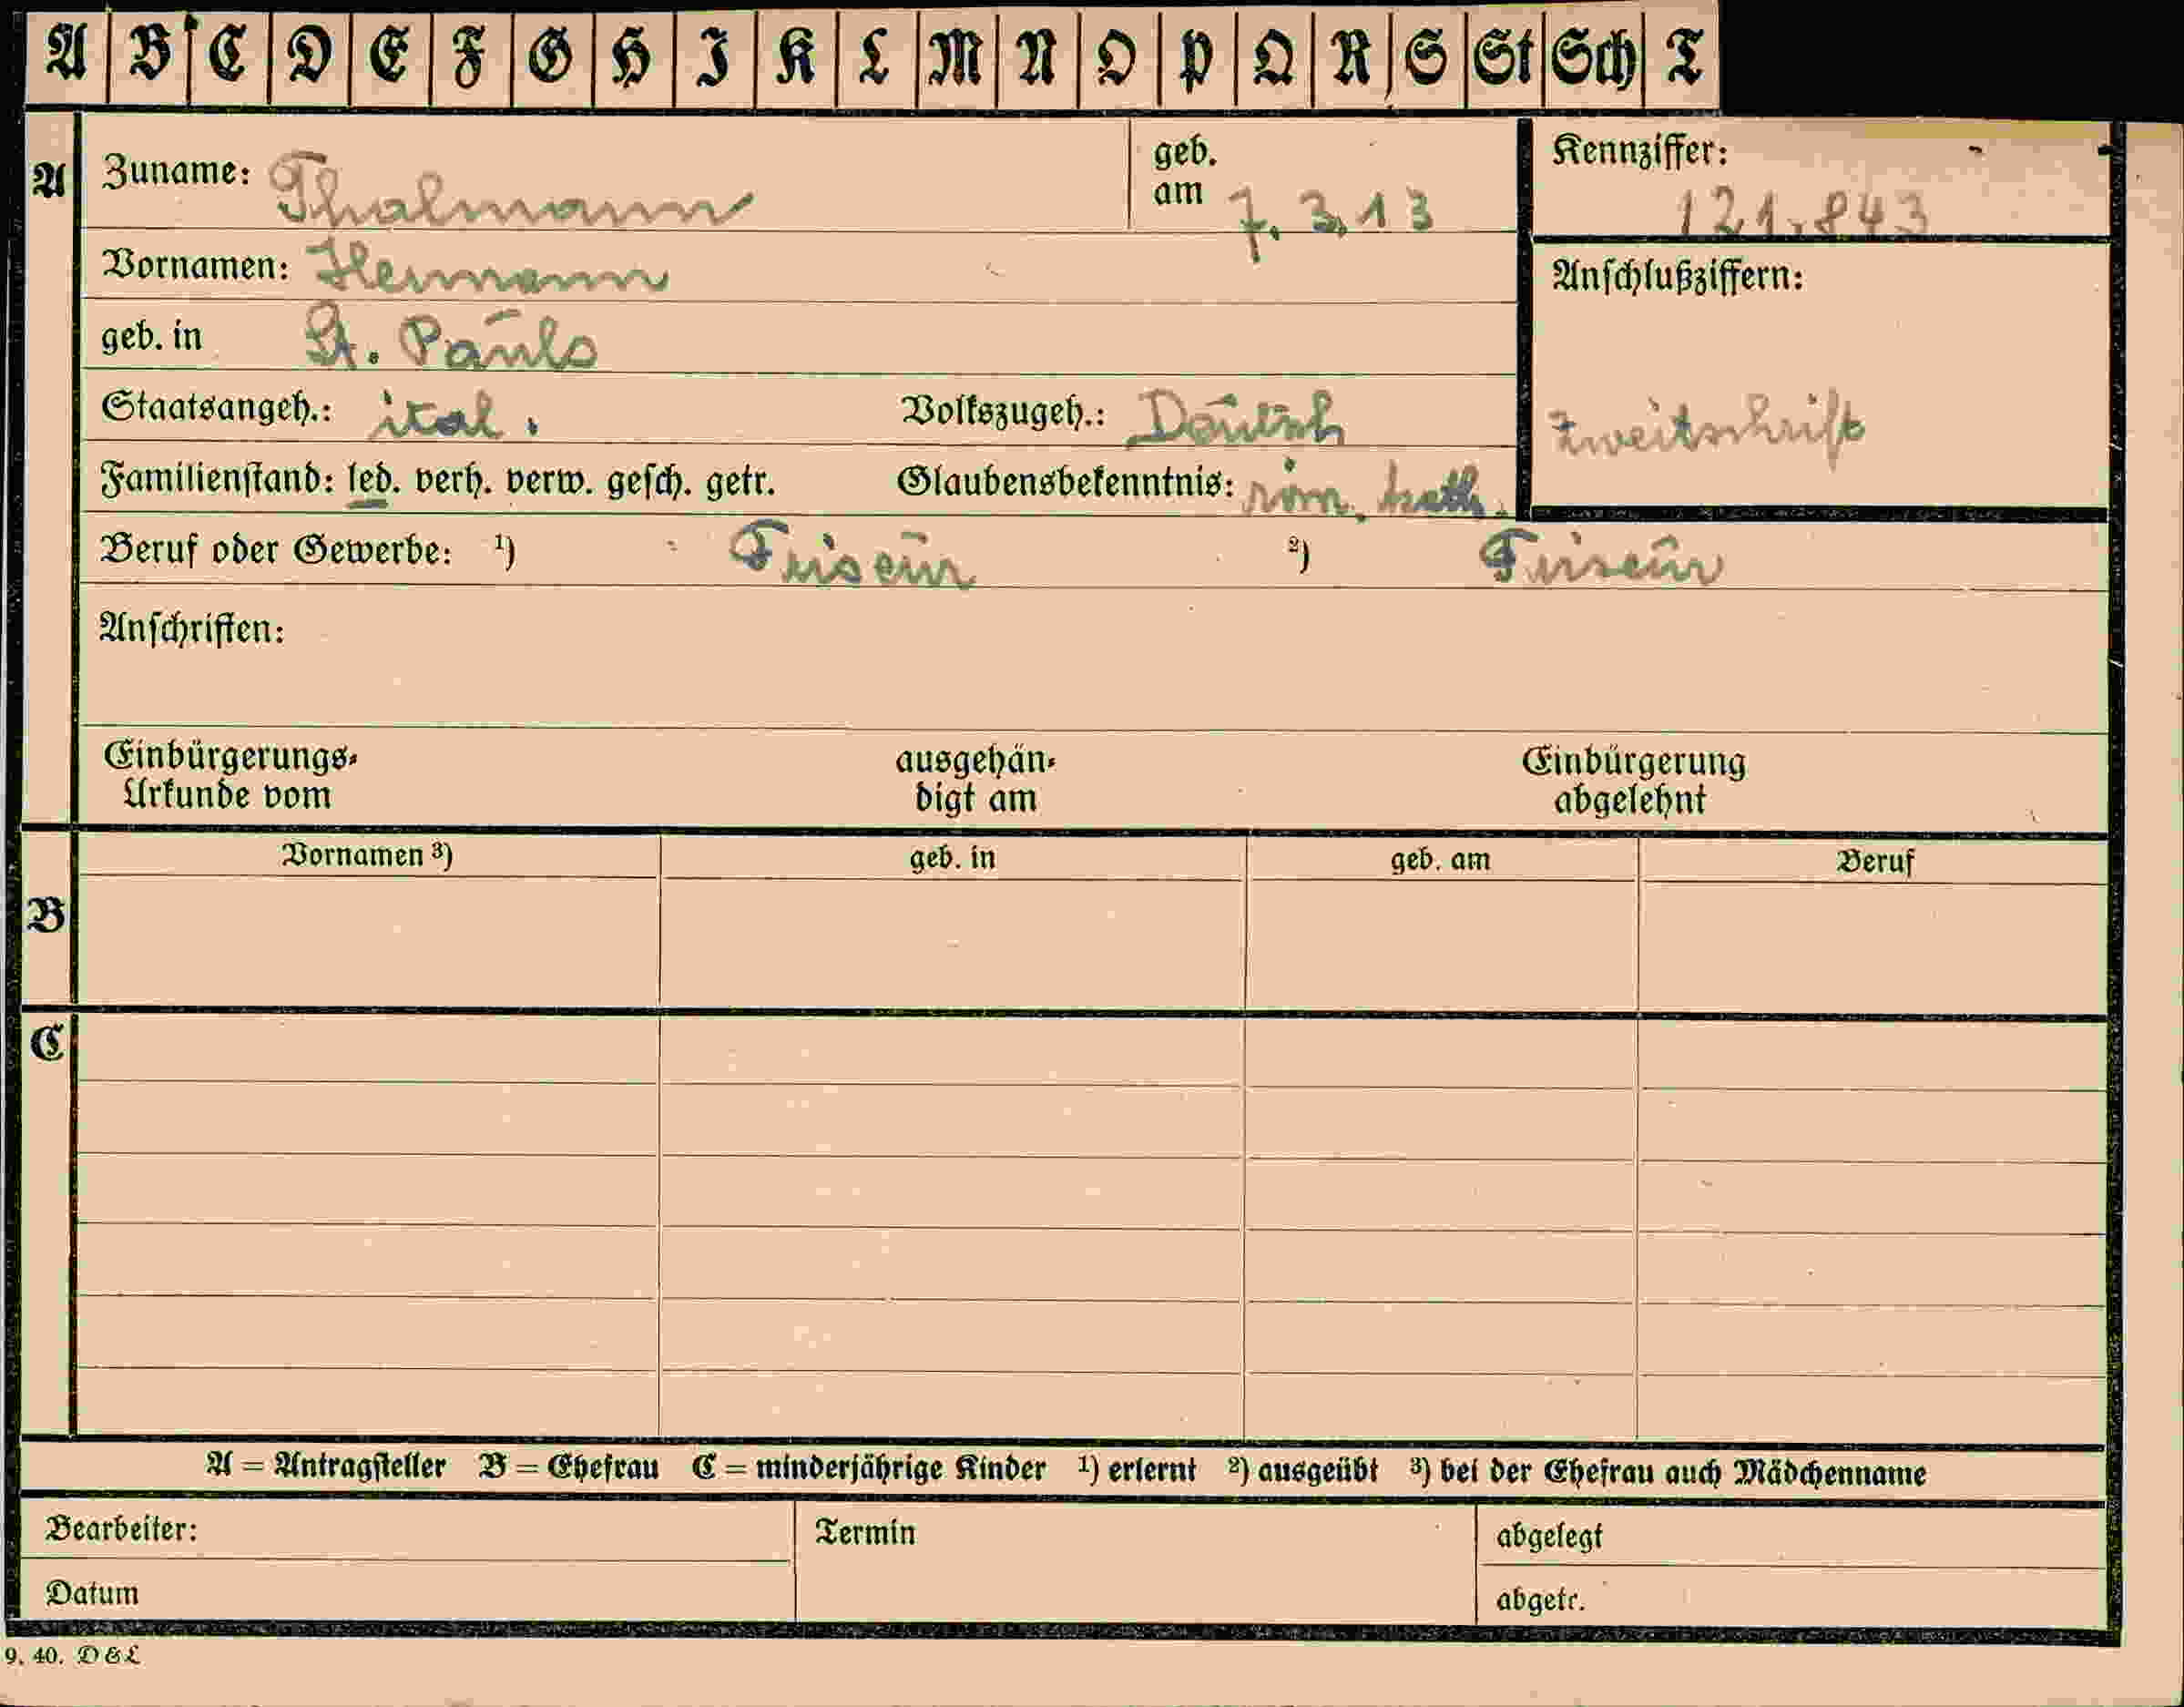 A B C D E F G H I K L M N O P Q R S St Sch T
A
Zuname: Thalmann
geb. am 7. 3. 13
Kennziffer: 121.843
Vornamen: Hermann
Anschlußziffern:
geb. in St. Pauls
Staatsangeh.: ital.
Volkszugeh.: Deutsch
Zweitschrift
Familienstand: led. verh. verw. gesch. getr.
Glaubensbekenntnis: röm. kath.
Beruf oder Gewerbe: ¹) Friseur ²) Friseur
Anschriften:
Einbürgerungs-
Urkunde vom
ausgehän-
digt am
Einbürgerung
abgelehnt
B
Vornamen ³) geb. in geb. am Beruf
C
A = Antragsteller B = Ehefrau C = minderjährige Kinder ¹) erlernt ²) ausgeübt ³) bei der Ehefrau auch Mädchenname
Bearbeiter:
Termin
abgelegt
Datum
abgetr.
9. 40. D & L